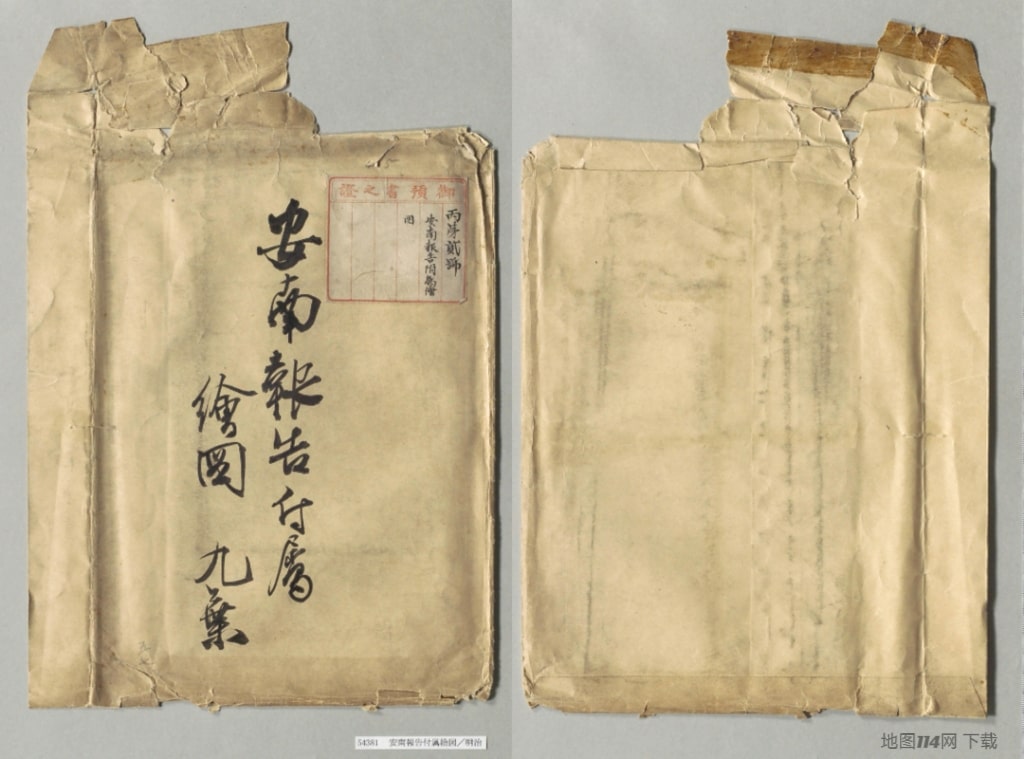 御預書之證
丙第貳號
安南報告附屬繪
図
安南報告付屬
繪圖 九葉
54381 安南報告付属絵図／明治
地图114网 下载